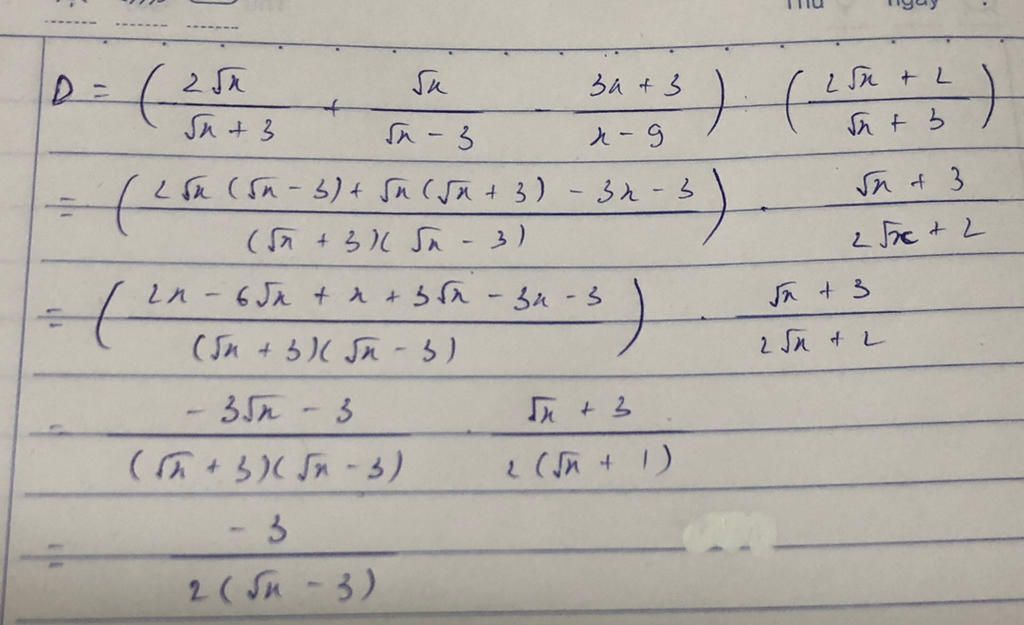 Thứ ngày
D = ( 2√x / (√x + 3) + √x / (√x - 3) - (3x + 3) / (x - 9) ) : ( (2√x + 2) / (√x + 3) )
= ( (2√x (√x - 3) + √x (√x + 3) - 3x - 3) / ((√x + 3)(√x - 3)) ) . (√x + 3) / (2√x + 2)
= ( (2x - 6√x + x + 3√x - 3x - 3) / ((√x + 3)(√x - 3)) ) . (√x + 3) / (2√x + 2)
= (-3√x - 3) / ((√x + 3)(√x - 3)) . (√x + 3) / (2(√x + 1))
= -3 / (2(√x - 3))